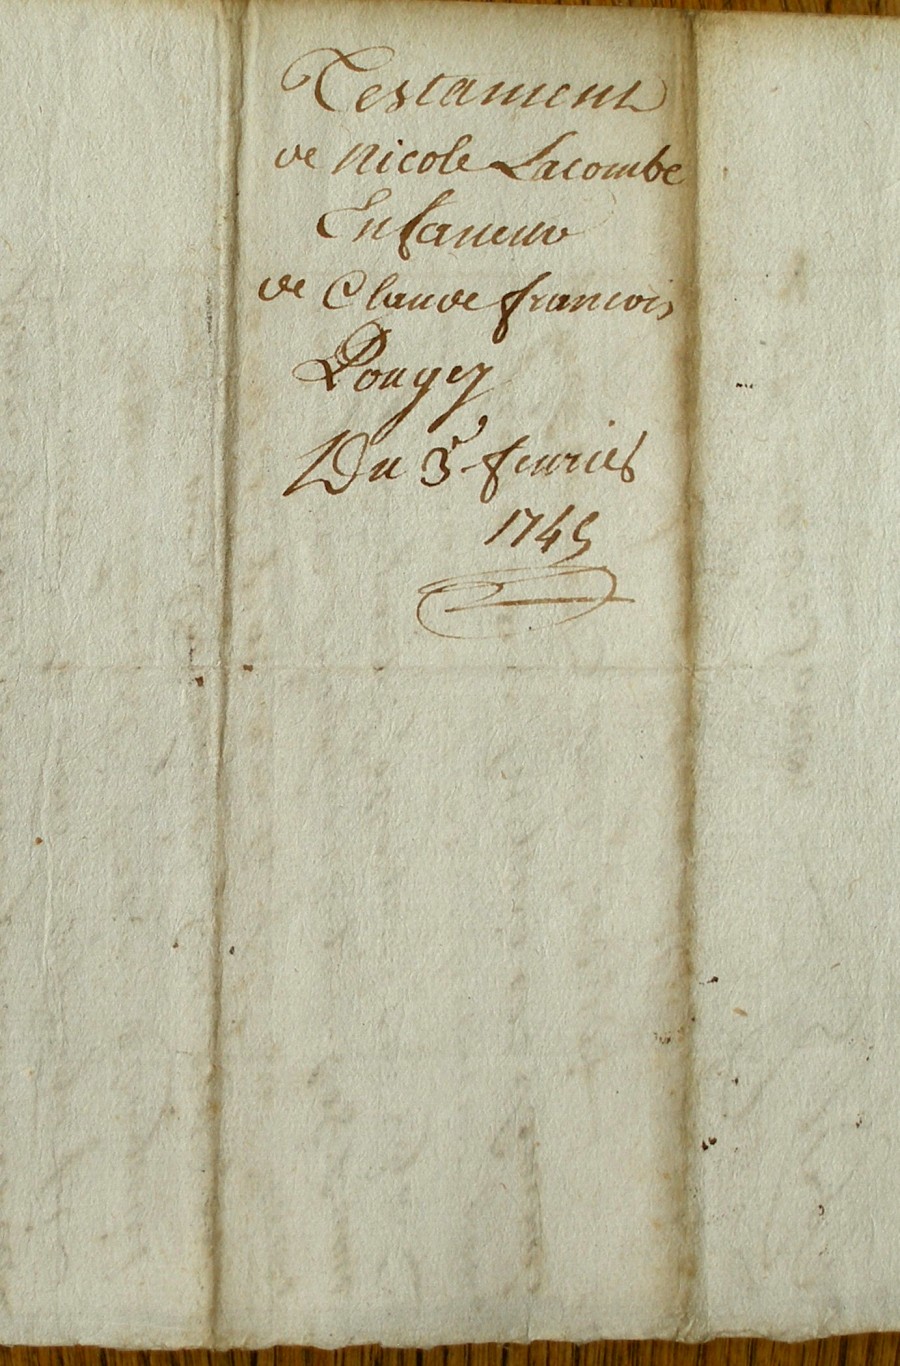 Testament
de Nicole Lacombe
En faveur
de Claude francois
Pougey
Du 3e fevrier
1745